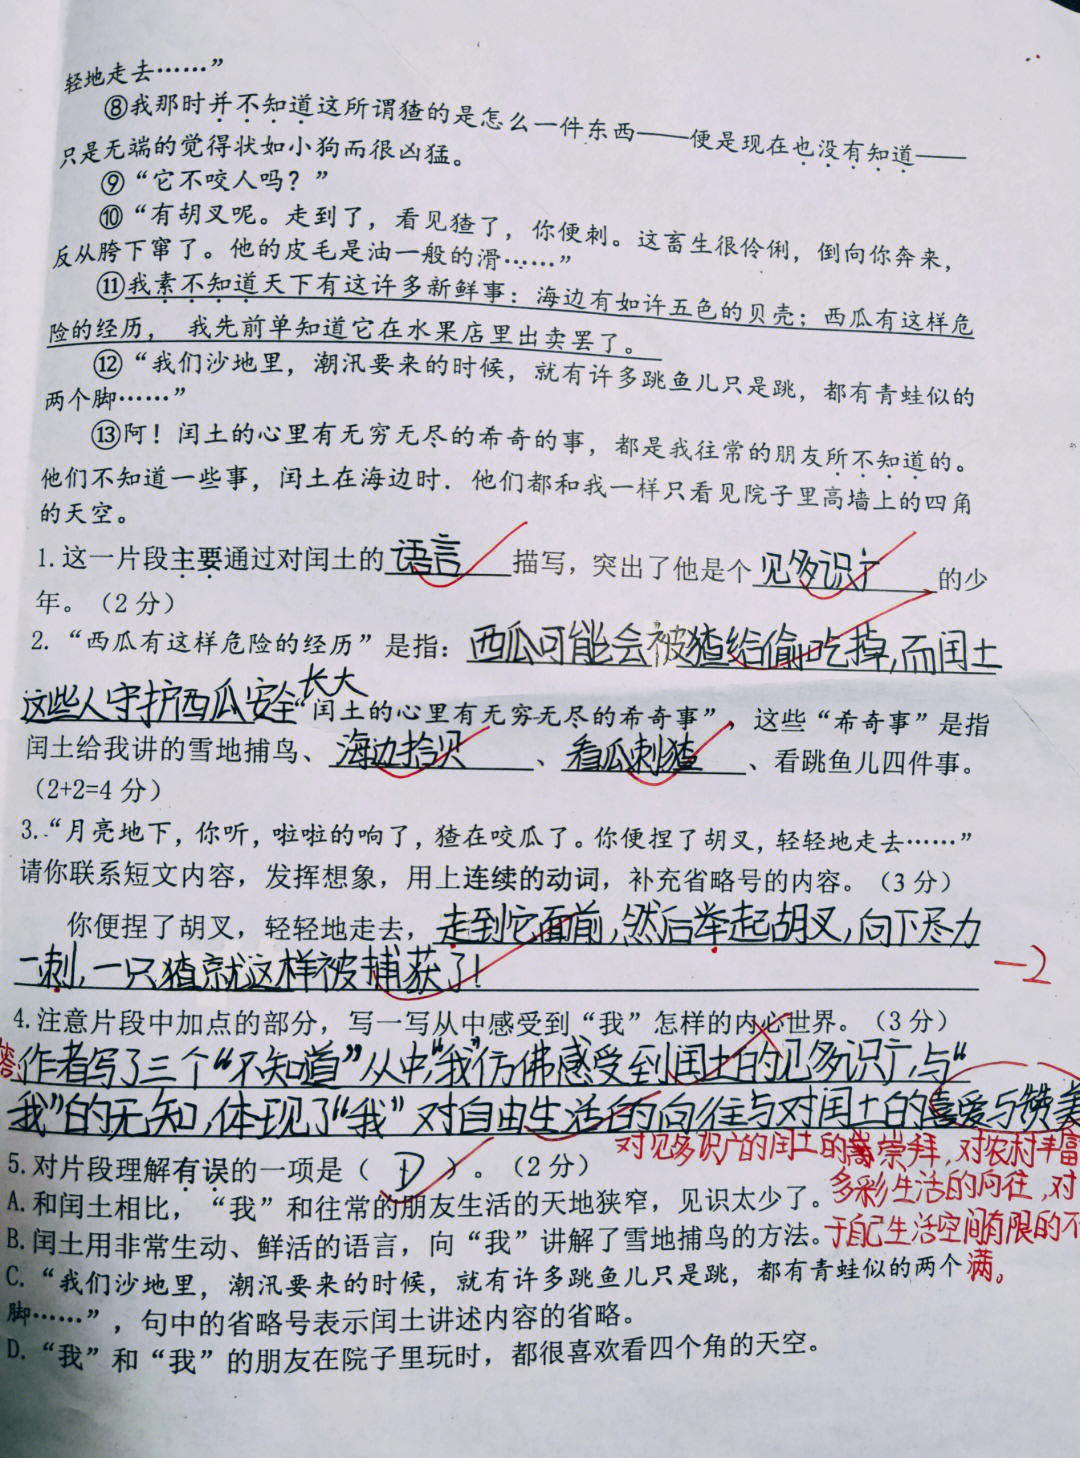 轻地走去……”
⑧我那时并不知道这所谓猹的是怎么一件东西——便是现在也没有知道——
只是无端的觉得状如小狗而很凶猛。
⑨“它不咬人吗？”
⑩“有胡叉呢。走到了，看见猹了，你便刺。这畜生很伶俐，倒向你奔来，
反从胯下窜了。他的皮毛是油一般的滑……”
⑪我素不知道天下有这许多新鲜事：海边有如许五色的贝壳；西瓜有这样危
险的经历， 我先前单知道它在水果店里出卖罢了。
⑫“我们沙地里，潮汛要来的时候，就有许多跳鱼儿只是跳，都有青蛙似的
两个脚……”
⑬阿！闰土的心里有无穷无尽的希奇的事，都是我往常的朋友所不知道的。
他们不知道一些事，闰土在海边时．他们都和我一样只看见院子里高墙上的四角
的天空。
1.这一片段主要通过对闰土的语言描写，突出了他是个见多识广的少
年。（2分）
2.“西瓜有这样危险的经历”是指：西瓜可能会被猹给偷吃掉，而闰土
长大
这些人守护西瓜安全“闰土的心里有无穷无尽的希奇事”，这些“希奇事”是指
闰土给我讲的雪地捕鸟、海边拾贝、看瓜刺猹、看跳鱼儿四件事。
（2+2=4分）
3.“月亮地下，你听，啦啦的响了，猹在咬瓜了。你便捏了胡叉，轻轻地走去……”
请你联系短文内容，发挥想象，用上连续的动词，补充省略号的内容。（3分）
你便捏了胡叉，轻轻地走去，走到它面前，然后举起胡叉，向下尽力
一刺，一只猹就这样被捕获了！
-2
4.注意片段中加点的部分，写一写从中感受到“我”怎样的内心世界。（3分）
答作者写了三个“不知道”从中，“我”仿佛感受到闰土的见多识广，与“
我”的无知，体现了“我”对自由生活的向往与对闰土的喜爱与赞美
对见多识广的闰土的崇拜，对农村丰富
多彩生活的向往，对
于自己生活空间有限的不
满。
5.对片段理解有误的一项是（D）。（2分）
A.和闰土相比，“我”和往常的朋友生活的天地狭窄，见识太少了。
B.闰土用非常生动、鲜活的语言，向“我”讲解了雪地捕鸟的方法。
C.“我们沙地里，潮汛要来的时候，就有许多跳鱼儿只是跳，都有青蛙似的两个
脚……”，句中的省略号表示闰土讲述内容的省略。
D.“我”和“我”的朋友在院子里玩时，都很喜欢看四个角的天空。